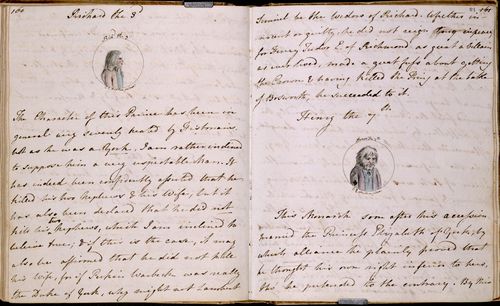 160
Richard the 3d
The Character of this Prince has been in
general very severely treated by Historians,
but as he was a York, I am rather inclined
to suppose him a very respectable Man. It
has indeed been confidently asserted that he
killed his two Nephews & his Wife, but it
has also been declared that he did not
kill his two Nephews, which I am inclined to
beleive true; & if this is the case, it may
also be affirmed that he did not kill
his Wife, for if Perkin Warbeck was really
the Duke of York, why might not Lambert
161
Simnel be the Widow of Richard. Whether in-
nocent or guilty, he did not reign long in peace,
for Henry Tudor E. of Richmond as great a Villain
as ever lived, made a great fuss about getting
the Crown & having killed the King at the battle
of Bosworth, he succeeded to it.
Henry the 7th
This Monarch soon after his accession
married the Princess Elizabeth of York, by
which alliance he plainly proved that
he thought his own right inferior to hers,
tho' he pretended to the contrary. By this